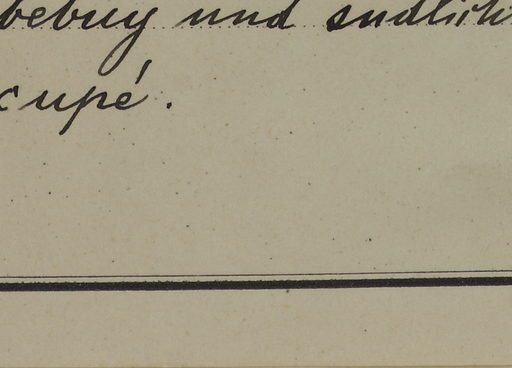 bebuy und sudlich
cupé.